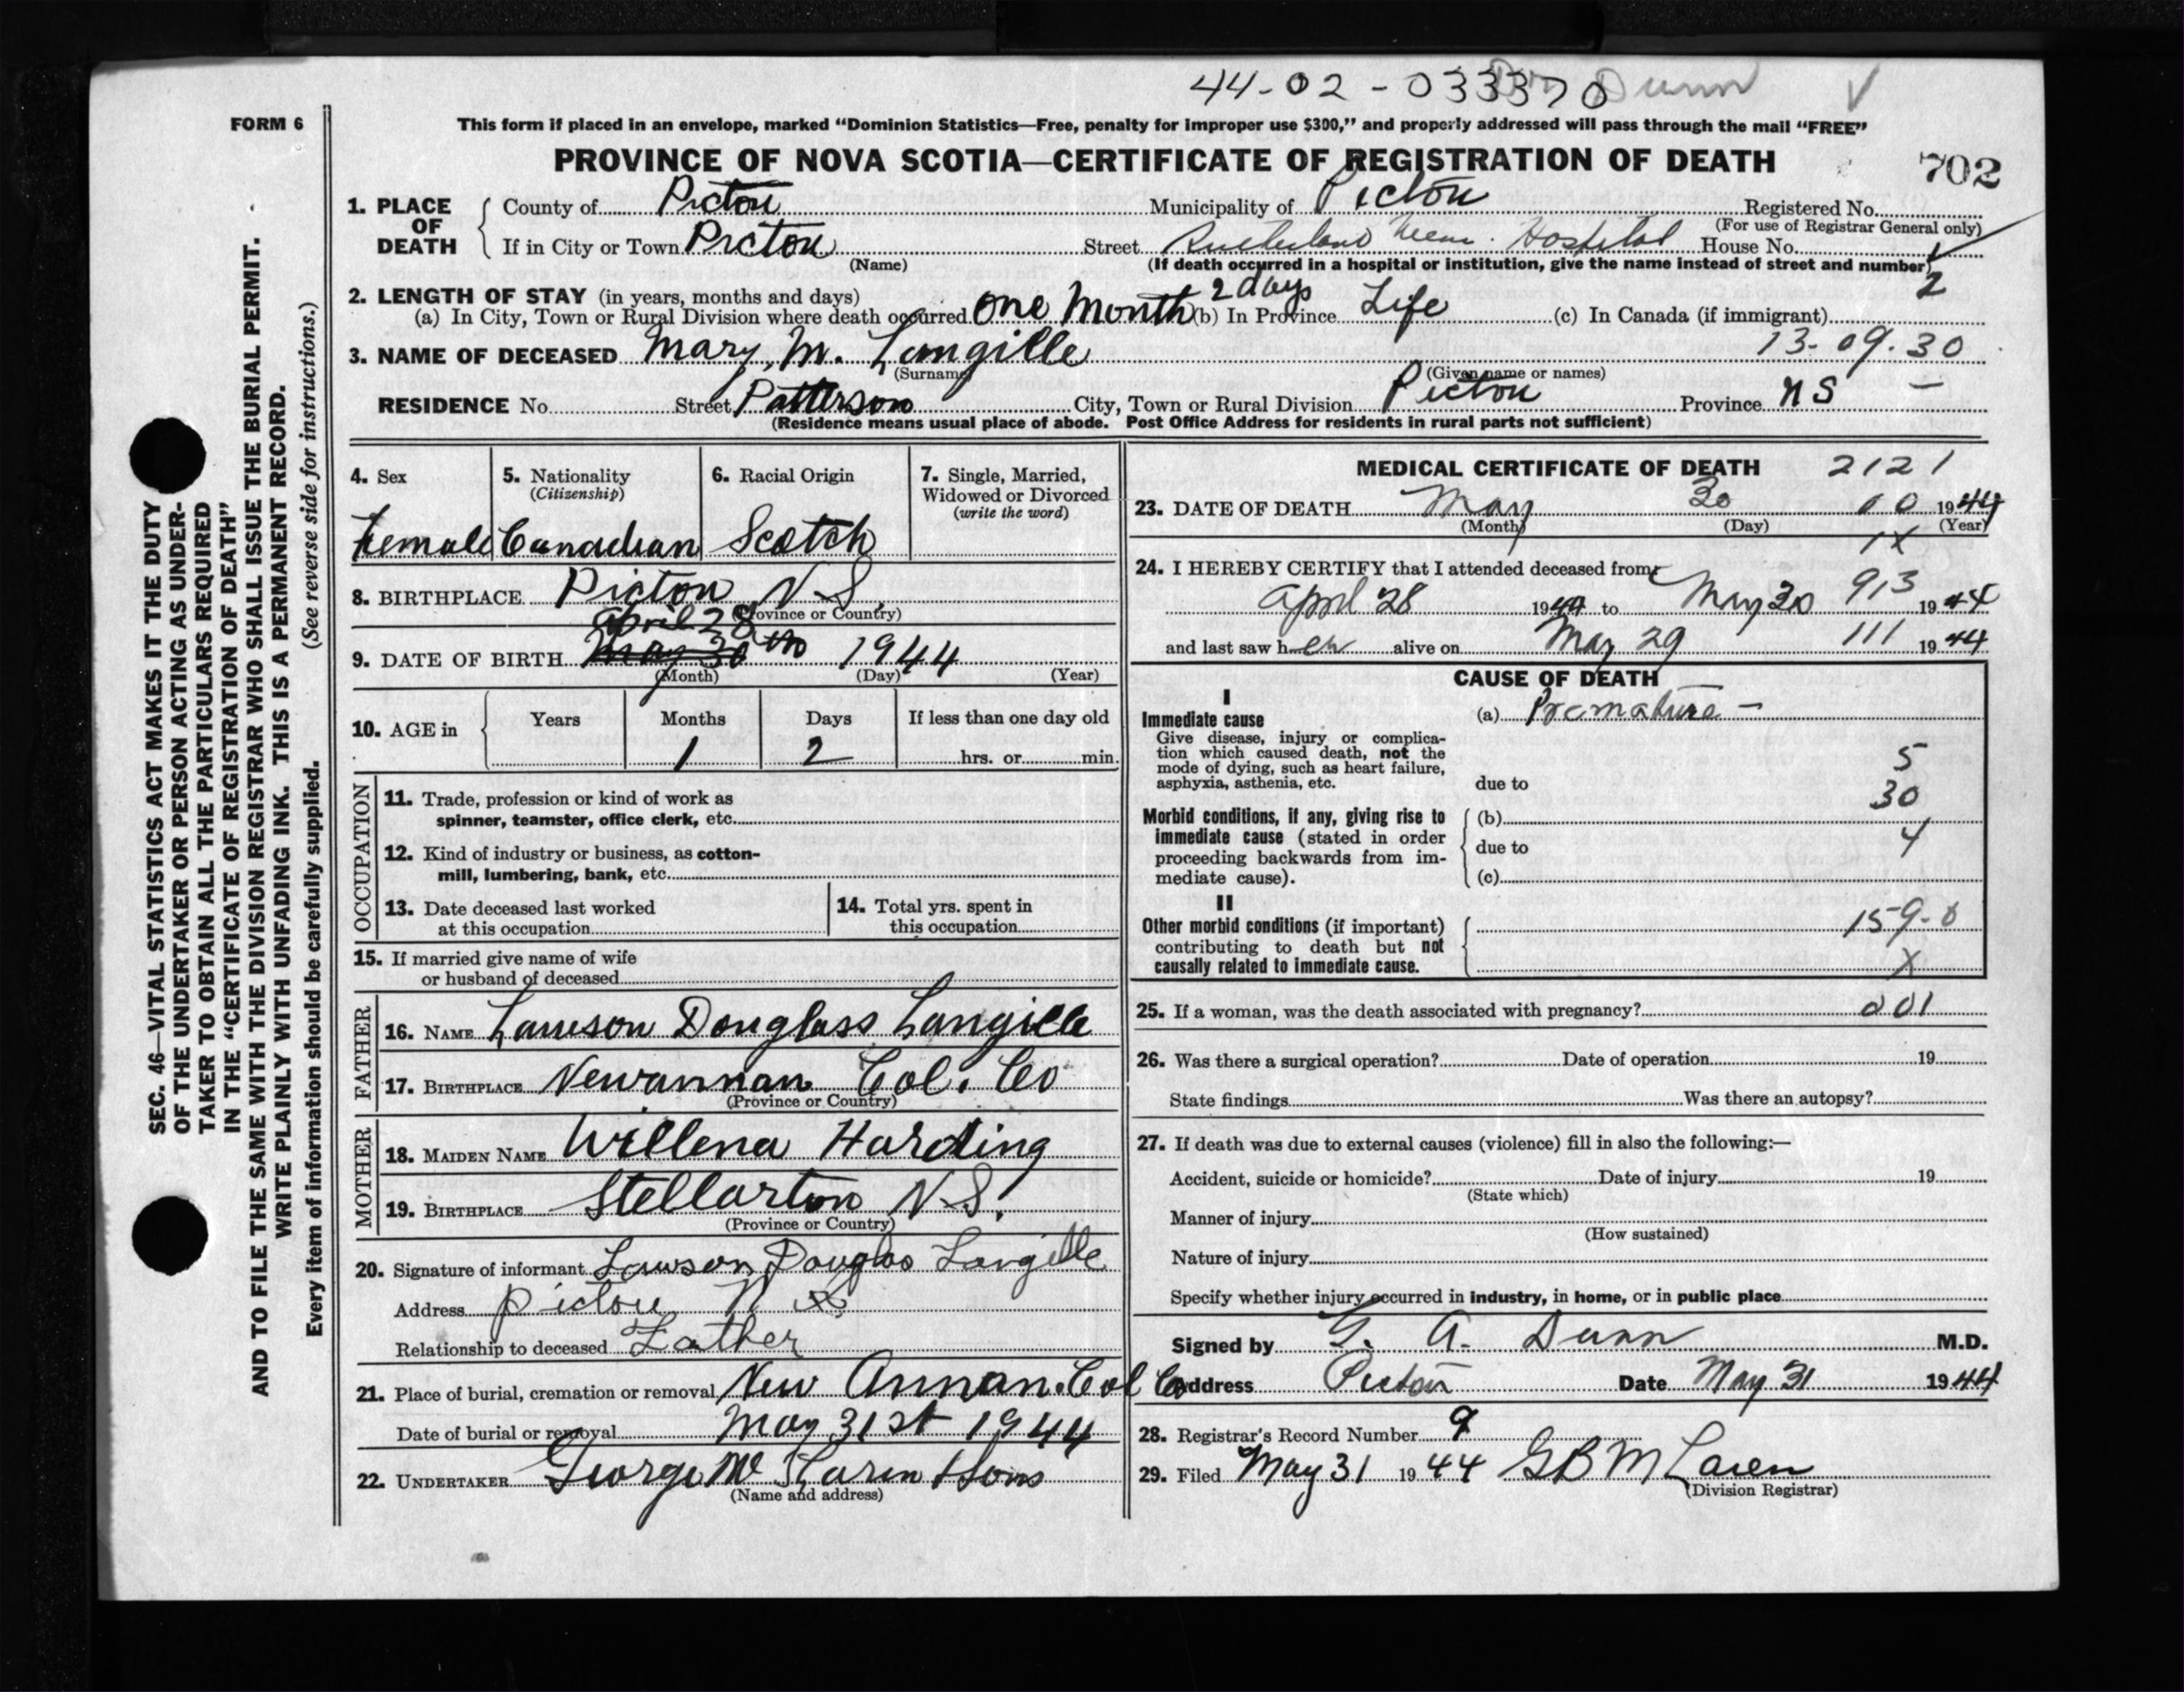 44-02-033370 Dr Dunn
FORM 6
This form if placed in an envelope, marked “Dominion Statistics—Free, penalty for improper use $300,” and properly addressed will pass through the mail “FREE”
PROVINCE OF NOVA SCOTIA—CERTIFICATE OF REGISTRATION OF DEATH
702
1. PLACE OF DEATH
County of Pictou Municipality of Pictou Registered No.
(For use of Registrar General only)
If in City or Town Pictou Street Sutherland Mem. Hospital House No.
(Name) (If death occurred in a hospital or institution, give the name instead of street and number)
2
2. LENGTH OF STAY (in years, months and days)
(a) In City, Town or Rural Division where death occurred One Month 2 days (b) In Province Life (c) In Canada (if immigrant)
3. NAME OF DECEASED Mary, M. Langille 13-09-30
(Surname) (Given name or names)
RESIDENCE No. Street Patterson City, Town or Rural Division Pictou Province N S –
(Residence means usual place of abode. Post Office Address for residents in rural parts not sufficient)
4. Sex
Female
5. Nationality
(Citizenship)
Canadian
6. Racial Origin
Scotch
7. Single, Married, Widowed or Divorced
(write the word)
8. BIRTHPLACE Pictou N.S.
(Province or Country)
April 28
9. DATE OF BIRTH May 30th 1944
(Month) (Day) (Year)
10. AGE in
Years Months Days If less than one day old
1 2 hrs. or min.
OCCUPATION
11. Trade, profession or kind of work as
spinner, teamster, office clerk, etc.
12. Kind of industry or business, as cotton-
mill, lumbering, bank, etc.
13. Date deceased last worked
at this occupation
14. Total yrs. spent in
this occupation
15. If married give name of wife
or husband of deceased
FATHER
16. NAME Lawson Douglass Langille
17. BIRTHPLACE Newannan Col. Co
(Province or Country)
MOTHER
18. MAIDEN NAME Willena Harding
19. BIRTHPLACE Stellarton N.S.
(Province or Country)
20. Signature of informant Lawson Douglas Langille
Address Pictou N S
Relationship to deceased Father
21. Place of burial, cremation or removal New Annan. Col Co
Date of burial or removal May 31st 1944
22. UNDERTAKER George McLaren & Sons
(Name and address)
MEDICAL CERTIFICATE OF DEATH 2121
23. DATE OF DEATH May 30 00 1944
(Month) (Day) (Year)
1X
24. I HEREBY CERTIFY that I attended deceased from
April 28 1944 to May 30 913 1944
and last saw her alive on May 29 111 1944
CAUSE OF DEATH
I
Immediate cause
Give disease, injury or complica-
tion which caused death, not the
mode of dying, such as heart failure,
asphyxia, asthenia, etc.
(a) Premature –
5
due to
30
Morbid conditions, if any, giving rise to
immediate cause (stated in order
proceeding backwards from im-
mediate cause).
(b)
due to 4
(c)
II
Other morbid conditions (if important)
contributing to death but not
causally related to immediate cause.
159-0
X
25. If a woman, was the death associated with pregnancy? 001
26. Was there a surgical operation? Date of operation 19
State findings Was there an autopsy?
27. If death was due to external causes (violence) fill in also the following:—
Accident, suicide or homicide? Date of injury 19
(State which)
Manner of injury
(How sustained)
Nature of injury
Specify whether injury occurred in industry, in home, or in public place
Signed by G. A. Dunn M.D.
Address Pictou Date May 31 1944
28. Registrar's Record Number 9
29. Filed May 31 1944 G B McLaren
(Division Registrar)
SEC. 46—VITAL STATISTICS ACT MAKES IT THE DUTY
OF THE UNDERTAKER OR PERSON ACTING AS UNDER-
TAKER TO OBTAIN ALL THE PARTICULARS REQUIRED
IN THE “CERTIFICATE OF REGISTRATION OF DEATH”
AND TO FILE THE SAME WITH THE DIVISION REGISTRAR WHO SHALL ISSUE THE BURIAL PERMIT.
WRITE PLAINLY WITH UNFADING INK. THIS IS A PERMANENT RECORD.
Every item of information should be carefully supplied. (See reverse side for instructions.)